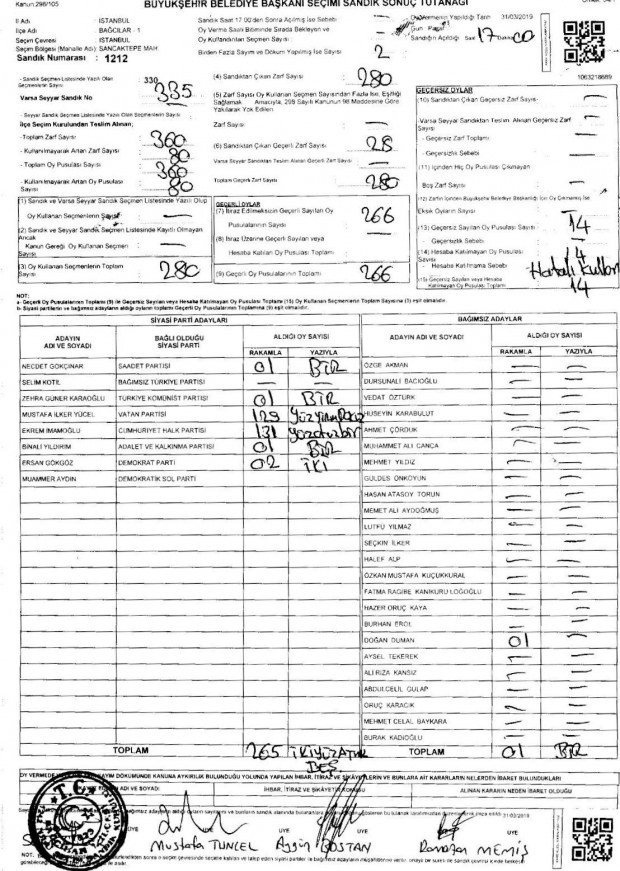 Kanun:298/105
BÜYÜKŞEHİR BELEDİYE BAŞKANI SEÇİMİ SANDIK SONUÇ TUTANAĞI
İl Adı : İSTANBUL
İlçe Adı : BAĞCILAR - 1
Seçim Çevresi : İSTANBUL
Seçim Bölgesi (Mahalle Adı): SANCAKTEPE MAH
Sandık Numarası : 1212
Sandık Saat 17:00'den Sonra Açılmış İse Sebebi —
Oy Verme Saati Bitiminde Sırada Bekleyen ve
Oy Kullandırılan Seçmen Sayısı —
Birden Fazla Sayım ve Döküm Yapılmış İse Sayısı 2
Oy Vermenin Yapıldığı Tarih 31/03/2019
Gün Pazar
Sandığın Açıldığı Saat 17 Dakika 00
1063218689
- Sandık Seçmen Listesinde Yazılı Olan
Seçmenlerin Sayısı
330
335
Varsa Seyyar Sandık No
- Seyyar Sandık Seçmen Listesinde Yazılı Olan Seçmenlerin Sayısı
İlçe Seçim Kurulundan Teslim Alınan;
-Toplam Zarf Sayısı 360
- Kullanılmayarak Artan Zarf Sayısı 80
- Toplam Oy Pusulası Sayısı 360
- Kullanılmayarak Artan Oy Pusulası
Sayısı 80
(1) Sandık ve Varsa Seyyar Sandık Seçmen Listesinde Yazılı Olup
Oy Kullanan Seçmenlerin Sayısı
(2) Sandık ve Seyyar Sandık Seçmen Listesinde Kayıtlı Olmayan
Ancak
Kanun Gereği Oy Kullanan Seçmen
Sayısı
(3) Oy Kullanan Seçmenlerin Toplam
Sayısı 280
(4) Sandıktan Çıkan Zarf Sayısı 280
(5) Zarf Sayısı Oy Kullanan Seçmen Sayısından Fazla İse, Eşitliği
Sağlamak Amacıyla, 298 Sayılı Kanunun 98 Maddesine Göre
Yakılarak Yok Edilen
Zarf Sayısı —
(6) Sandıktan Çıkan Geçerli Zarf Sayısı 28
Varsa Seyyar Sandıktan Teslim Alınan Geçerli Zarf Sayısı —
Toplam Geçerli Zarf Sayısı 280
GEÇERLİ OYLAR
(7) İtiraz Edilmeksizin Geçerli Sayılan Oy
Pusulalarının Sayısı 266
(8) İtiraz Üzerine Geçerli Sayılan veya
Hesaba Katılan Oy Pusulalarının Sayısı —
(9) Geçerli Oy Pusulalarının Toplamı 266
GEÇERSİZ OYLAR
(10) Sandıktan Çıkan Geçersiz Zarf Sayısı —
-Varsa Seyyar Sandıktan Teslim Alınan Geçersiz Zarf
Sayısı
- Geçersiz Zarf Toplamı —
- Geçersizlik Sebebi —
(11) İçinden Hiç Oy Pusulası Çıkmayan
Boş Zarf Sayısı —
(12) Zarfın İçinden Büyükşehir Belediye Başkanlığı İçin Oy Çıkmamış İse
Eksik Oyların Sayısı —
(13) Geçersiz Sayılan Oy Pusulası Sayısı 14
- Geçersizlik Sebebi
(14) Hesaba Katılmayan Oy Pusulası
Sayısı
- Hesaba Katılmama Sebebi Hatalı
(15) Geçersiz Sayılan veya Hesaba
Katılmayan Oy Pusulası Toplamı 14
NOT:
a- Geçerli Oy Pusulalarının Toplamı (9) ile Geçersiz Sayılan veya Hesaba Katılmayan Oy Pusulası Toplamı (15) Oy Kullanan Seçmenlerin Toplam Sayısına (3) eşit olmalıdır.
b- Siyasi partilerin ve bağımsız adayların aldığı oyların toplamı Geçerli Oy Pusulalarının Toplamına (9) eşit olmalıdır.
SİYASİ PARTİ ADAYLARI BAĞIMSIZ ADAYLAR
ADAYIN ADI VE SOYADI BAĞLI OLDUĞU SİYASİ PARTİ ALDIĞI OY SAYISI RAKAMLA YAZIYLA ADAYIN ADI VE SOYADI ALDIĞI OY SAYISI RAKAMLA YAZIYLA
NECDET GÖKÇINAR SAADET PARTİSİ 01 BİR ÖZGE AKMAN — —
SELİM KOTİL BAĞIMSIZ TÜRKİYE PARTİSİ — — DURSUNALİ BACIOĞLU — —
ZEHRA GÜNER KARAOĞLU TÜRKİYE KOMÜNİST PARTİSİ 01 BİR VEDAT ÖZTÜRK — —
MUSTAFA İLKER YÜCEL VATAN PARTİSİ 129 HÜSEYİN KARABULUT — —
EKREM İMAMOĞLU CUMHURİYET HALK PARTİSİ 131 yüzotuzbir AHMET ÇÖRDÜK — —
BİNALİ YILDIRIM ADALET VE KALKINMA PARTİSİ 01 BİR MUHAMMET ALİ CANCA — —
ERSAN GÖKGÖZ DEMOKRAT PARTİ 02 İKİ MEHMET YILDIZ — —
MUAMMER AYDIN DEMOKRATİK SOL PARTİ GÜLDES ÖNKOYUN — —
HASAN ATASOY TORUN — —
MEMET ALİ AYDOĞMUŞ — —
LUTFU YILMAZ — —
SEÇKİN İLKER — —
HALEF ALP — —
ÖZKAN MUSTAFA KÜÇÜKKURAL — —
FATMA RAGİBE KANIKURU LOĞOĞLU — —
HAZER ORUÇ KAYA — —
BURHAN EROL — —
DOĞAN DUMAN 01 —
AYSEL TEKEREK — —
ALİ RIZA KANSIZ — —
ABDULCELİL GULAP — —
ORUÇ KARACIK — —
MEHMET CELAL BAYKARA — —
BURAK KADIOĞLU — —
TOPLAM 265 İKİYÜZATMIŞ BEŞ TOPLAM 01 BİR
OY VERMEDE VE SAYIM DÖKÜMÜNDE KANUNA AYKIRILIK BULUNDUĞU YOLUNDA YAPILAN İHBAR, İTİRAZ VE ŞİKAYETLERİN VE BUNLARA AİT KARARLARIN NELERDEN İBARET BULUNDUKLARI
İHBAR, İTİRAZ VE ŞİKAYETİN KONUSU ALINAN KARARIN NEDEN İBARET OLDUĞU
31/03/2019
ÜYE ÜYE ÜYE
Mustafa TUNCEL Aygün BOSTAN Ramazan MEMİŞ